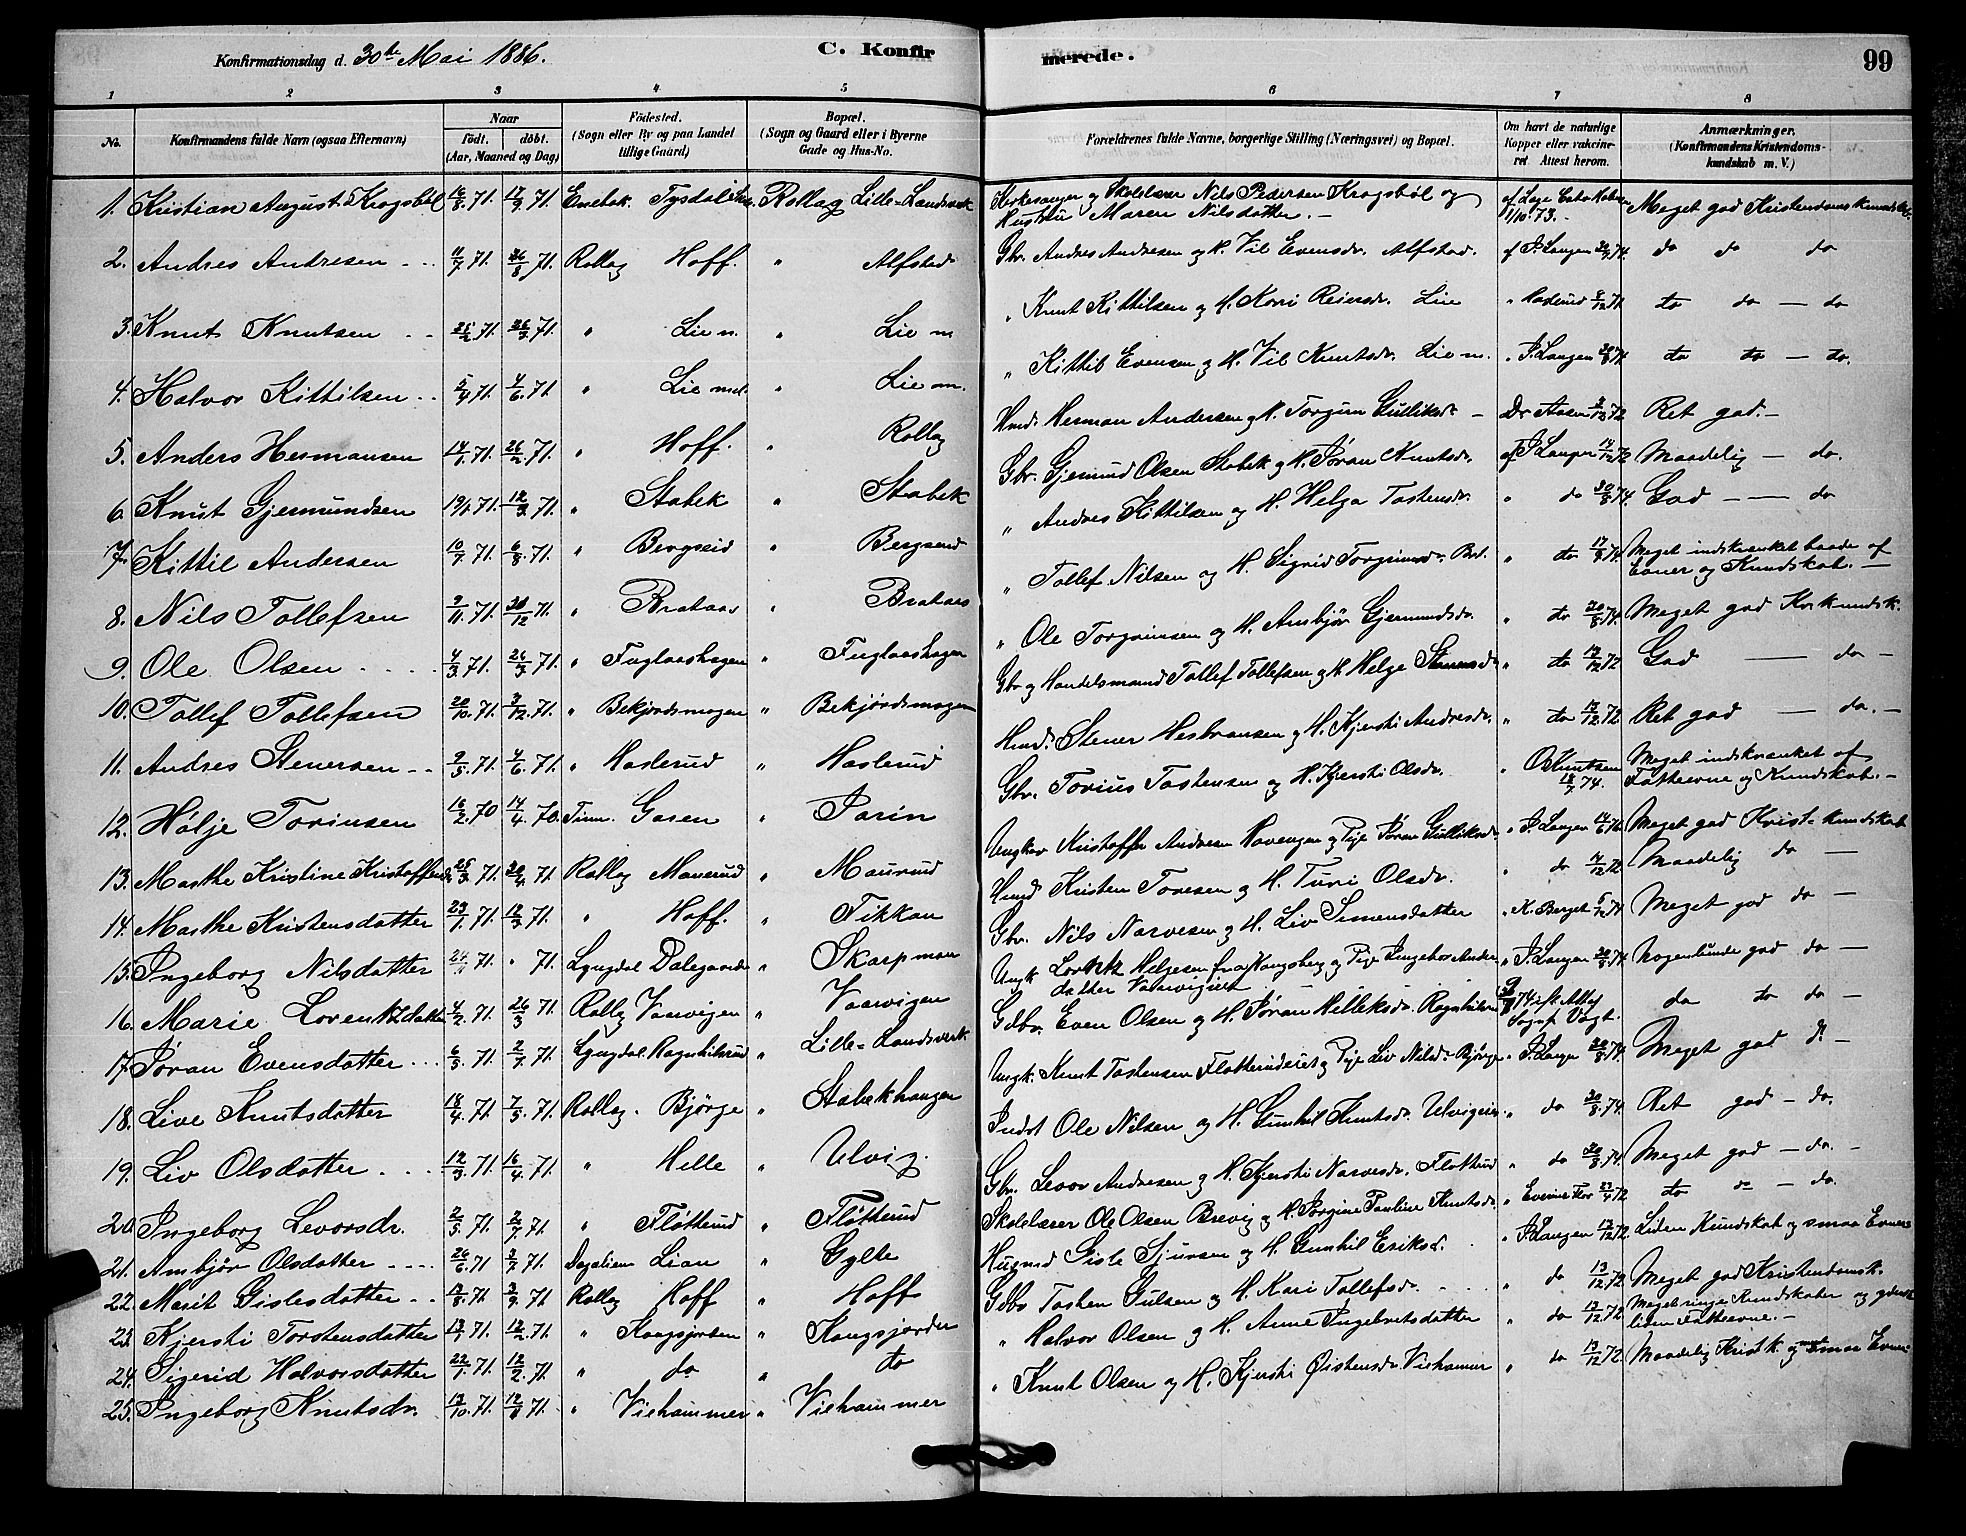 Konfirmationsdag d. 30te Mai 1886.
C. Konfir
merede.
99
1 2 3 4 5 6 7 8
No.
Konfirmandens fulde Navn (ogsaa Efternavn)
Naar
födt. döbt.
(Aar, Maaned og Dag)
Födested.
(Sogn eller By og paa Landet
tillige Gaard)
Bopæl.
(Sogn og Gaard eller i Byerne
Gade og Hus-No.
Forældrenes fulde Navne, borgerlige Stilling (Næringsvei) og Bopæl.
Om havt de naturlige
Kopper eller vakcine-
ret Attest herom.
Anmærkninger.
(Konfirmandens Kristendoms-
kundskab m. V.)
1. Kristian August Krogsböl 16/8 71. 17/9 71. Enebak Rollag Lille-Landsverk Kirkesanger og Skolelærer Nils Pedersen Krogsböl og Hustru Maren Nilsdatter. 1/10 73. Meget god Kristendomskundskab
2. Andres Andresen 4/7 71. 26/8 71. Rollag Hoff. " Alfstad Gbr. Andres Andresen og H. Vil Evensdr. Alfstad. af P. Langen 20/9 74. do do do
3. Knut Knutsen 25/2 71. 26/3 71. " Lie n. " Lie n " Knut Kittilsen og H. Kari Reiersdr. Lie " 8/12 71 do do — do
4. Halvor Kittilsen 5/4 71. 4/6 71. " Lie md. " Lie m. " Kittil Evensen og H. Vil Knutsdr. Lie m. " P. Langen 20/8 74 do do — do.
5. Anders Hermansen 14/1 71. 26/2 71. " Hoff. " Rollag Hmd. Herman Andersen og H. Torgun Gulliksdr. Dr Aasen 72 Ret god.
6. Knut Gjermundsen 19/1 71. 12/3 71. " Stabek " Stabek Gbr. Gjermund Olsen Stabek og H. Jøran Knutsdr. af P. Langen 14/12 72 Maadelig — do.
7. Kittil Andersen 10/7 71. 6/8 71. " Bergseid " Bergseid " Andres Kittilsen og H. Helga Tostensdr. " do 20/8 74. God — do
8. Nils Tollefsen 9/11 71. 30/12 71. " Brataas " Brataas " Tollef Nilsen og H. Sigrid Torgrimsdr. Brt. " do 17/9 74 Meget indskrænket baade af Evner og Kundskab.
9. Ole Olsen 4/3 71. 26/3 71. " Fuglaashagen " Fuglaashagen " Ole Torgrimsen og H. Ambjør Gjermundsdr. " do 20/8 74. Meget god Kr. kundsk.
10. Tollef Tollefsen 20/10 71. 3/12 71. " Bekjordsmogen " Bekjordsmogen Gbr og Handelsmand Tollef Tollefsen og H. Helge Stenersdr " do 17/12 72 God — do
11. Andres Stenersen 9/5 71. 4/6 71. " Haslerud " Haslerud Hmd. Stener Hesbransen og H. Kjersti Andresdr. " do 17/12 72 Ret god — do.
12. Hølje Torinsen 16/2 70 14/4 70. Tinn. Garen " Parin Gbr. Torius Tostensen og H. Kjersti Olsdr. " O. Knutsen 18/7 74. Meget indskrænket af Fatteevne og Kundskab.
13. Marthe Kristine Kristoffersdr 25/3 71. 71. Rollag Maverud " Maurud Ungkar Kristoffer Andresen Hovengen og Pige Jøran Gulliksdr " P. Langen 76 Meget god Krist-kundskab
14. Marthe Kristensdatter 23/1 71. 12/3 71. " Hoff. " Fikkan Hmd Kristen Toresen og H. Turi Olsdr. " do 72 Maadelig do
15. Ingeborg Nilsdatter 71. " 71. Lyngdal Dalegaarde " Skarpmoen Gbr. Nils Narvesen og H. Liv Simensdatter " K. Berget 74 Meget god do
16. Marie Lorentzdatter 4/2 71. 26/3 71 Rollag Vaarvigen " Vaarvigen Ungk. Lorentz Helgesen fra Kongsberg og Pige Ingebor Andersdatter Vaarvigen " P. Langen 20/8 74 Nogenlunde god do
17. Jøran Evensdatter 6/5 71. 2/7 71. Lyngdal Ragnhilrud " Lille-Landsverk Gdbr. Even Olsen og H. Jøran Hellekdr. Ragnhilrud do do do
18. Live Knutsdatter 18/4 71. 7/5 71. Rollag. Bjørge " Stabekhaugen Ungk. Knut Tostensen Flotterudeiet og Pige Liv Nilsdr Bjørge " P. Langen 20/8 74. Meget god do
19. Liv Olsdatter 12/3 71. 16/4 71. " Helle " Ulvig. Indst Ole Nilsen og H. Gunhil Knutsdr. Ulvigeie " do 20/8 74. Ret god — do.
20. Ingeborg Levorsdr. 2/5 71. 2/7 71. " Fløtterud " Fløtterud Gbr. Levor Andresen og H. Kjersti Narvesdr. Flotterud " do 20/8 74. Meget god — do.
21. Ambjør Olsdatter 26/6 71 71. Dagalien Lian " Gylte Skolelærer Ole Olsen Brevig og H. Jørgine Pauline Knutsdr. " 72 do do — do.
22. Marit Gislesdatter 71 3/9 71 Rollag Hoff " Hoff Husmd Gisle Sjursen og H. Gunhil Eriksd. " P. Langen 17/12 72. Liden Kundskab og smaa Evner
23. Kjersti Torstensdatter 71. 12/2 71. " Kongsjorden " Kongsjorden Gdbr Tosten Gulsen og H. Kari Tollefsdr. " do 13/12 72 Meget god Kristendomsk.
24. Sigrid Halvorsdatter 22/1 71. 12/2 71. " do " do " Halvor Olsen og H. Anne Ingebretsdatter " do 13/12 72 Meget ringe Kundskaber og liden Fatteevne.
25. Ingeborg Knutsdr. 13/10 71. 71. " Viehammer " Viehammer " Knut Olsen og H. Kjersti Øistensdr Viehammer " do 13/12 72 Maadelig Kristk. og smaa Evner